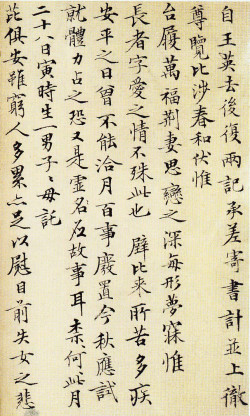 自王英去後復兩記承差寄書計並上徹
尊覽比涉春和伏惟
台履萬福荊妻思戀之深每形夢寐惟
長者字愛之情不殊此也 辟比來所苦多疾
安平之日曾不能洽月百事廢置今秋應試
就體力占之恐又是虛名故事耳柰何此月
二十八日寅時生一男子〻母託
芘俱安雖窮人多累亦足以慰目前失女之悲